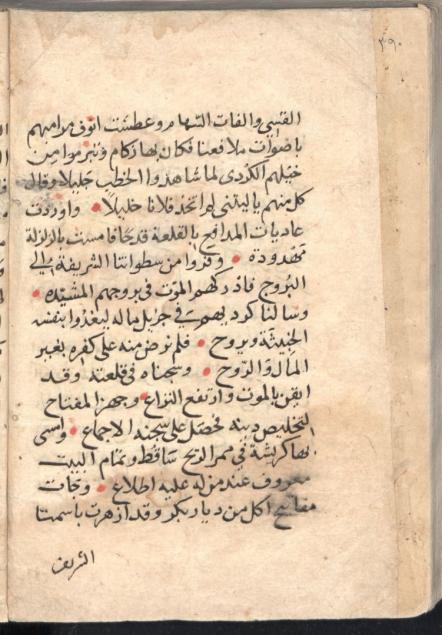 ٣٩٠
القسي والفات السهام وعطست انوف مرامهم
باصوات مدافعنا فكان بها زكام وتبرموا من
خيلهم الكردى لما شاهدوا الخطب جليلا وقال
كل منهم ياليتنى لم اتخذ فلانا خليلا واوردت
عاديات المدافع بالقلعة قدحا فامست بالزلزلة
مهدودة وفروا من سطواتنا الشريفة الى
البروج فادركهم الموت فى بروجهم المشيدة
وسالنا كرديهم فى جزيل ماله ليغدوا بنفسه
الخبيثة ويروح فلم نرض منه على كفره بغير
المال والروح وسجناه فى قلعته وقد
ايقن بالموت وارتفع النزاع وجهز المفتاح
لتخليص دينه فحصل على سجنه الاجماع وامسى
بها كريشة في ممر الريح ساقط وتمام البيت
معروف عند من له عليه اطلاع وجات
مفاتيح اكل من ديار بكر وقد ازهرت باسمنا
الشريف